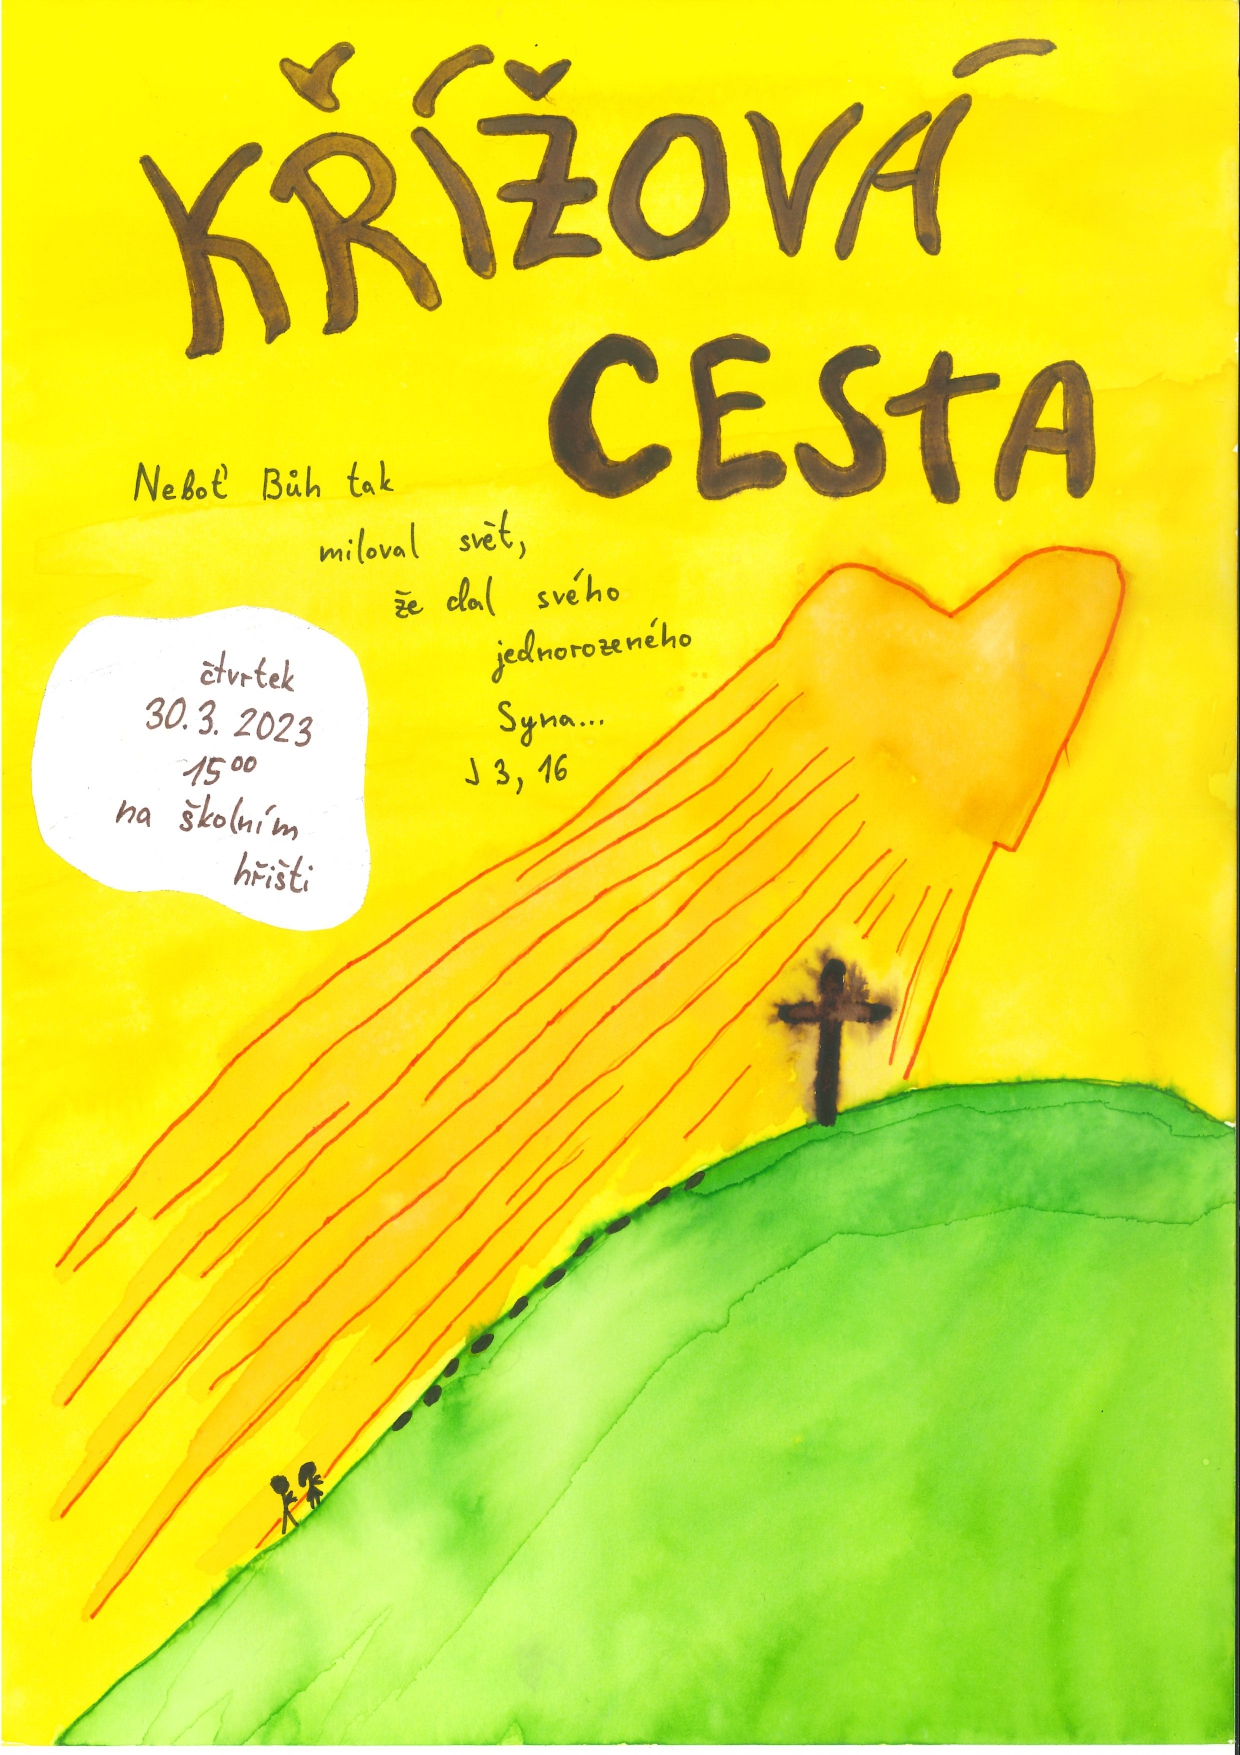 KŘÍŽOVÁ
CESTA
Neboť Bůh tak
miloval svět,
že dal svého
jednorozeného
Syna...
J 3, 16
čtvrtek
30. 3. 2023
15⁰⁰
na školním
hřišti